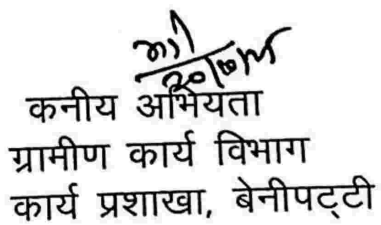 कनीय अभियता
ग्रामीण कार्य विभाग
कार्य प्रशाखा, बेनीपट्टी